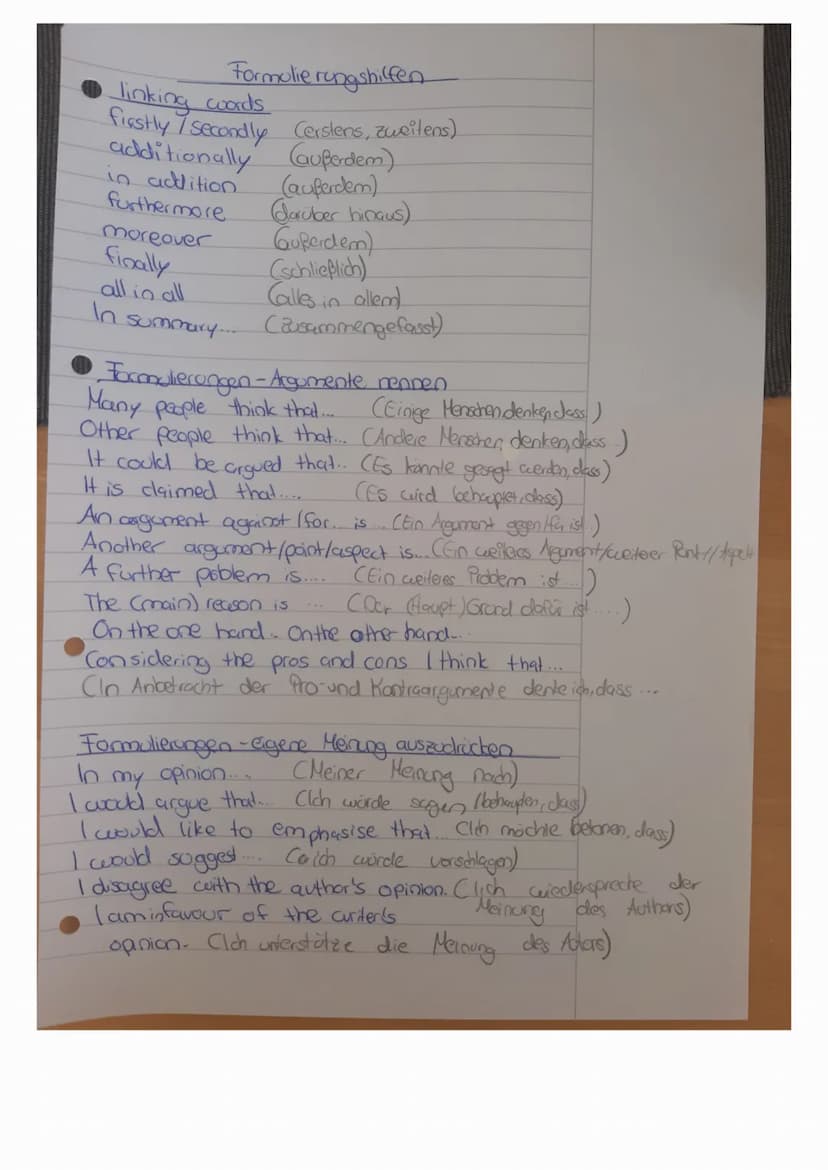 Formulierungshilfen
linking words
firstly / secondly (erstens, zweitens)
additionally (außerdem)
in addition (außerdem)
furthermore (darüber hinaus)
moreover (außerdem)
finally (schließlich)
all in all (alles in allem)
In summary... (zusammengefasst)
Formulierungen - Argumente nennen
Many people think that... (Einige Menschen denken, dass )
Other people think that... (Andere Menschen denken, dass )
It could be argued that.. (Es könnte gesagt werden, dass)
It is claimed that.... (Es wird behauptet, dass)
An argument against / for.. is... (Ein Argument gegen/für ist )
Another argument/point/aspect is... (Ein weiteres Argument/weiterer Punkt//Aspekt
A further poblem is.... (Ein weiteres Problem ist ...)
The (main) reason is ... (Der (Haupt)Grund dafür ist ....)
On the one hand.. On the other hand...
Considering the pros and cons I think that...
(In Anbetracht der Pro- und Kontraargumente denke ich, dass ...
Formulierungen - eigene Meinung auszudrücken
In my opinion... (Meiner Meinung nach)
I would argue that... (Ich würde sagen /behaupten, dass)
I would like to emphasise that... (Ich möchte betonen, dass)
I would suggest.... (ich würde vorschlagen)
I disagree with the author's opinion. (Ich wiederspreche der
Meinung des Authors)
I am in favour of the writer's
opinion. (Ich unterstütze die Meinung des Autors)